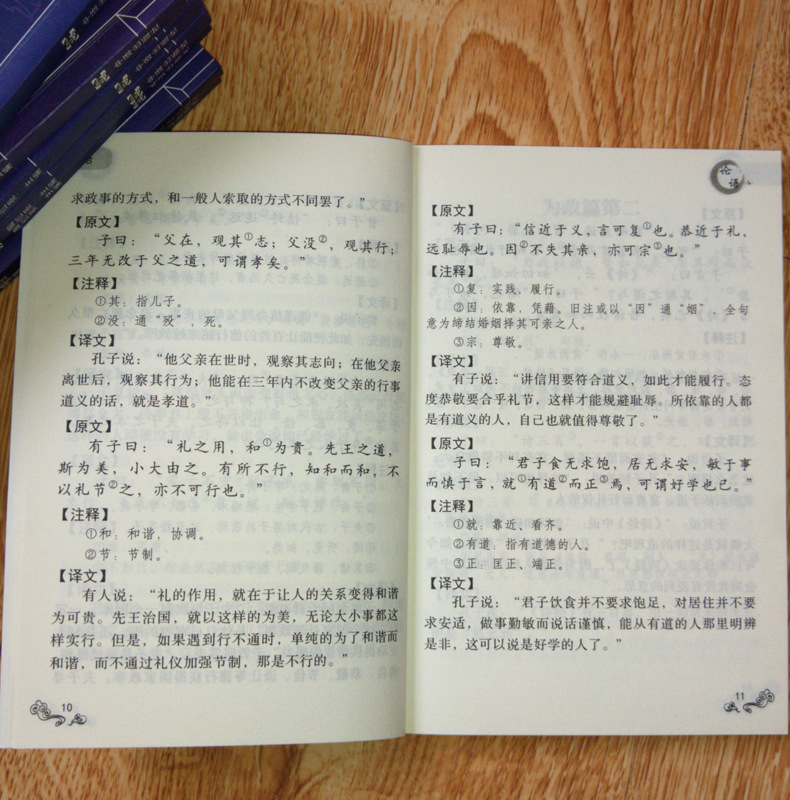 求政事的方式，和一般人索取的方式不同罢了。”
【原文】
子曰：“父在，观其①志；父没②，观其行；
三年无改于父之道，可谓孝矣。”
【注释】
①其：指儿子。
②没：通“殁”，死。
【译文】
孔子说：“他父亲在世时，观察其志向；在他父亲
离世后，观察其行为；他能在三年内不改变父亲的行事
道义的话，就是孝道。”
【原文】
有子曰：“礼之用，和①为贵。先王之道，
斯为美，小大由之。有所不行，知和而和，不
以礼节②之，亦不可行也。”
【注释】
①和：和谐，协调。
②节：节制。
【译文】
有人说：“礼的作用，就在于让人的关系变得和谐
为可贵。先王治国，就以这样的为美，无论大小事都这
样实行。但是，如果遇到行不通时，单纯的为了和谐而
和谐，而不通过礼仪加强节制，那是不行的。”
10
论语
【原文】
有子曰：“信近于义，言可复①也。恭近于礼，
远耻辱也。因②不失其亲，亦可宗③也。”
【注释】
①复：实践，履行。
②因：依靠，凭藉。旧注或以“因”通“姻”，全句
意为缔结婚姻择其可亲之人。
③宗：尊敬。
【译文】
有子说：“讲信用要符合道义，如此才能履行。态
度恭敬要合乎礼节，这样才能规避耻辱。所依靠的人都
是有道义的人，自己也就值得尊敬了。”
【原文】
子曰：“君子食无求饱，居无求安，敏于事
而慎于言，就①有道②而正③焉，可谓好学也已。”
【注释】
①就：靠近、看齐。
②有道：指有道德的人。
③正：匡正、端正。
【译文】
孔子说：“君子饮食并不要求饱足，对居住并不要
求安适，做事勤敏而说话谨慎，能从有道的人那里明辨
是非，这可以说是好学的人了。”
11